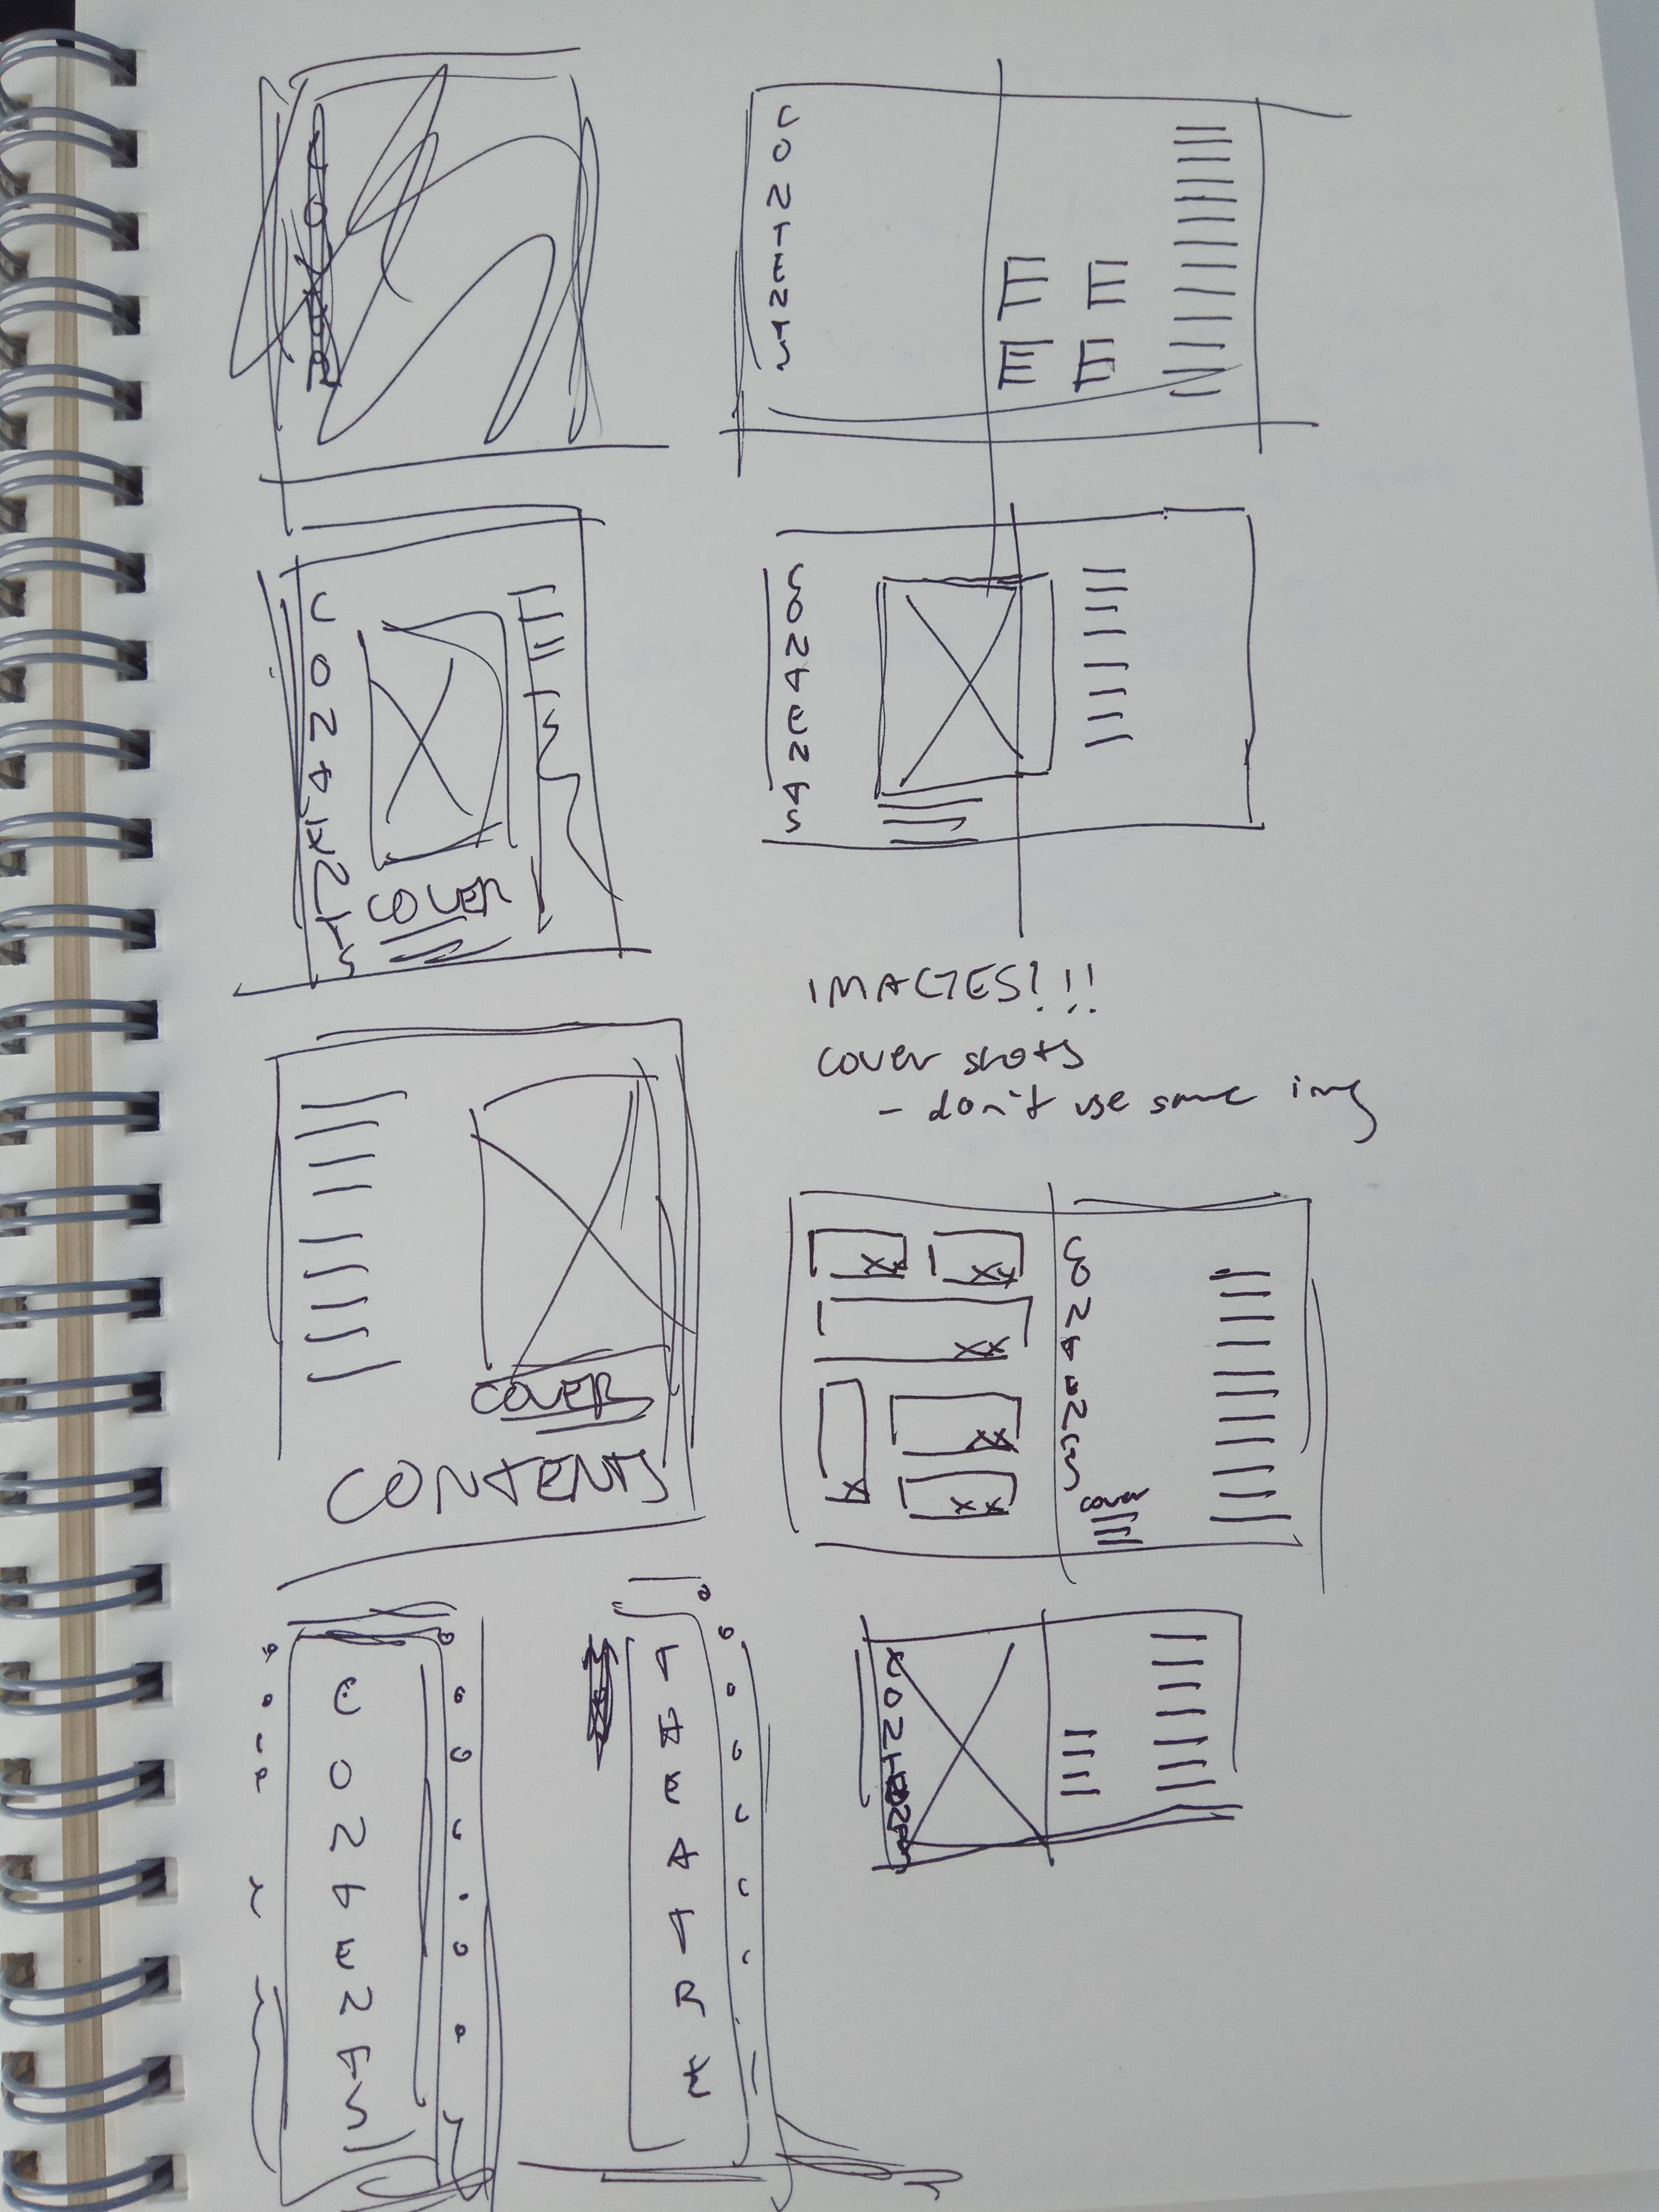 CONTENTS
CONTENTS
COVER
CONTENTS
IMAGES?!!
cover shots
- don't use same img
COVER
CONTENTS
xx
xx
xx
x
xx
xx
CONTENTS
cover
CONTENTS
THEATRE
CONTENTS